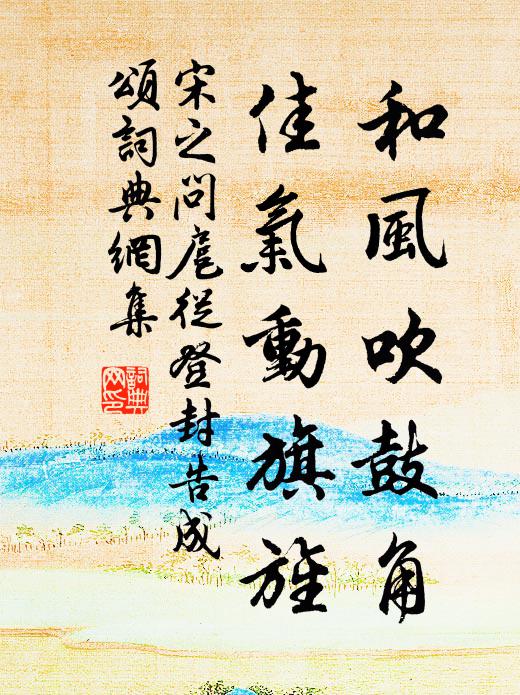 和風吹鼓角
佳氣動旗旌
宋之問扈從登封告成
頌詞典網集
詞典網印